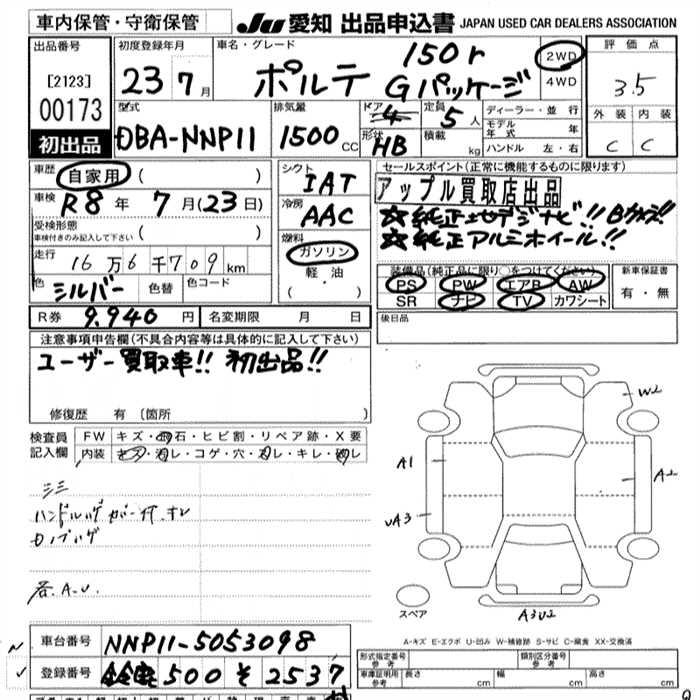 車内保管・守衛保管 JU 愛知 出品申込書 JAPAN USED CAR DEALERS ASSOCIATION
出品番号 初度登録年月 車名・グレード 評価点
[2123] 23 年 7 月 ポルテ 150r Gパッケージ 2WD 4WD 3.5
00173
初出品
型式 排気量 ドア 4 定員 5 人 ディーラー・並行 外装 内装
DBA-NNP11 1500 CC 形状 HB 積載 kg モデル年式 年 C C
ハンドル 左・右
車歴 自家用 ( ) シフト IAT セールスポイント(正常に機能するものに限ります)
車検 R8 年 7 月(23日) 冷房 AAC アップル買取店出品
受検形態 ( ) ☆純正 デジナビ!! Bカメラ!!
車検付きのみ記入して下さい ☆純正アルミホイール!!
走行 16 万 6 千 709 km 燃料 ガソリン 軽油 ( )
装備品(純正品に限り○をつけてください) 新車保証書
色 シルバー 色替 色コード PS PW エアB AW 有・無
SR ナビ TV カワシート
R券 9.940 円 名変期限 月 日 後日品
注意事項申告欄(不具合内容等は具体的に記入して下さい)
ユーザー買取車!! 初出品!!
修復歴 有 (箇所
検査員記入欄 FW キズ・飛石・ヒビ割・リペア跡・X要
内装 キズ・汚レ・コゲ・穴・スレ・キレ・
W2
A1
A2
UA3
ハンドルハゲ カバー付
各.A.U.
スペア
A3U2
A-キズ E-エクボ U-凹み W-補修跡 S-サビ C-腐食 XX-交換済
車台番号 NNP11-5053098
形式指定番号 参考 類別区分番号 参考
登録番号 500 そ 2537
車庫証明用 参考 長さ cm 幅 cm 高さ cm